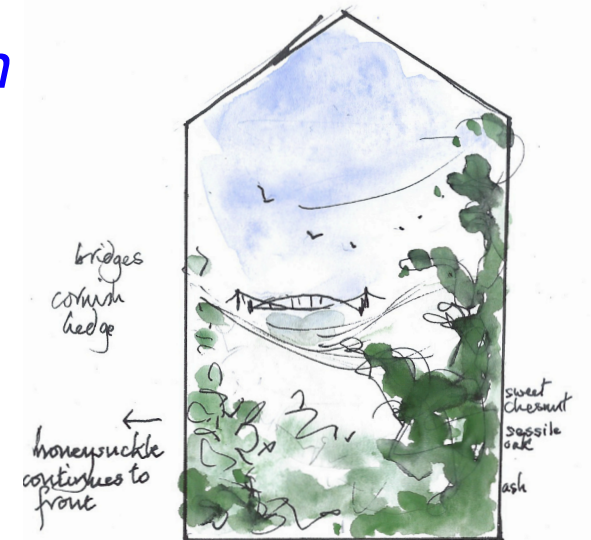 n
bridges
cornish
hedge
honeysuckle
continues to
front
sweet
chesnut
sessile
oak
ash